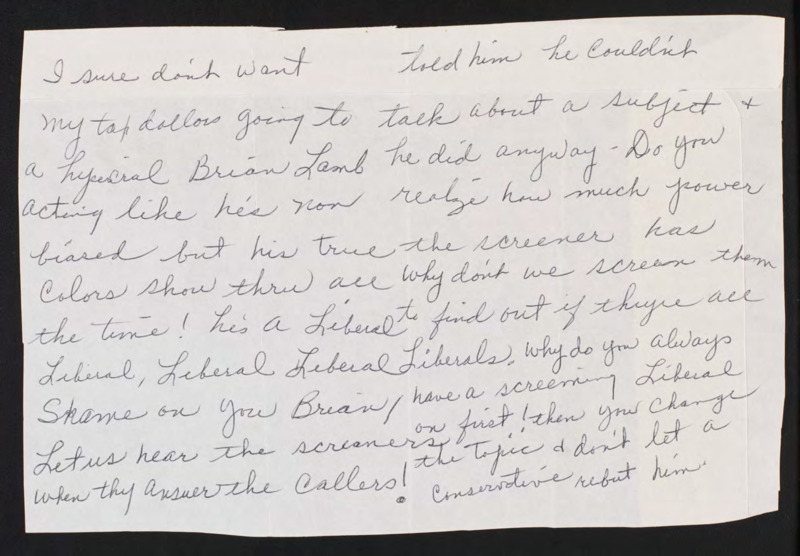 I sure don't want
My tax dollors going to
a hyricral Brian Lamb
acting like he's non
biased but his true
Colors show thru all
the time! he's a Liberal
Liberal, Liberal Leberal
Shame on you Brian!
Let us hear the screaners
when thy answer the Callers!
told him he couldn't
talk about a subject +
he did anyway - Do you
realize how much power
the screener has
Why don't we screen them
to find out if theyre all
Liberals. Why do you always
have a screeming Liberal
on first! then you change
the Topic + don't let a
Conservative rebut him.